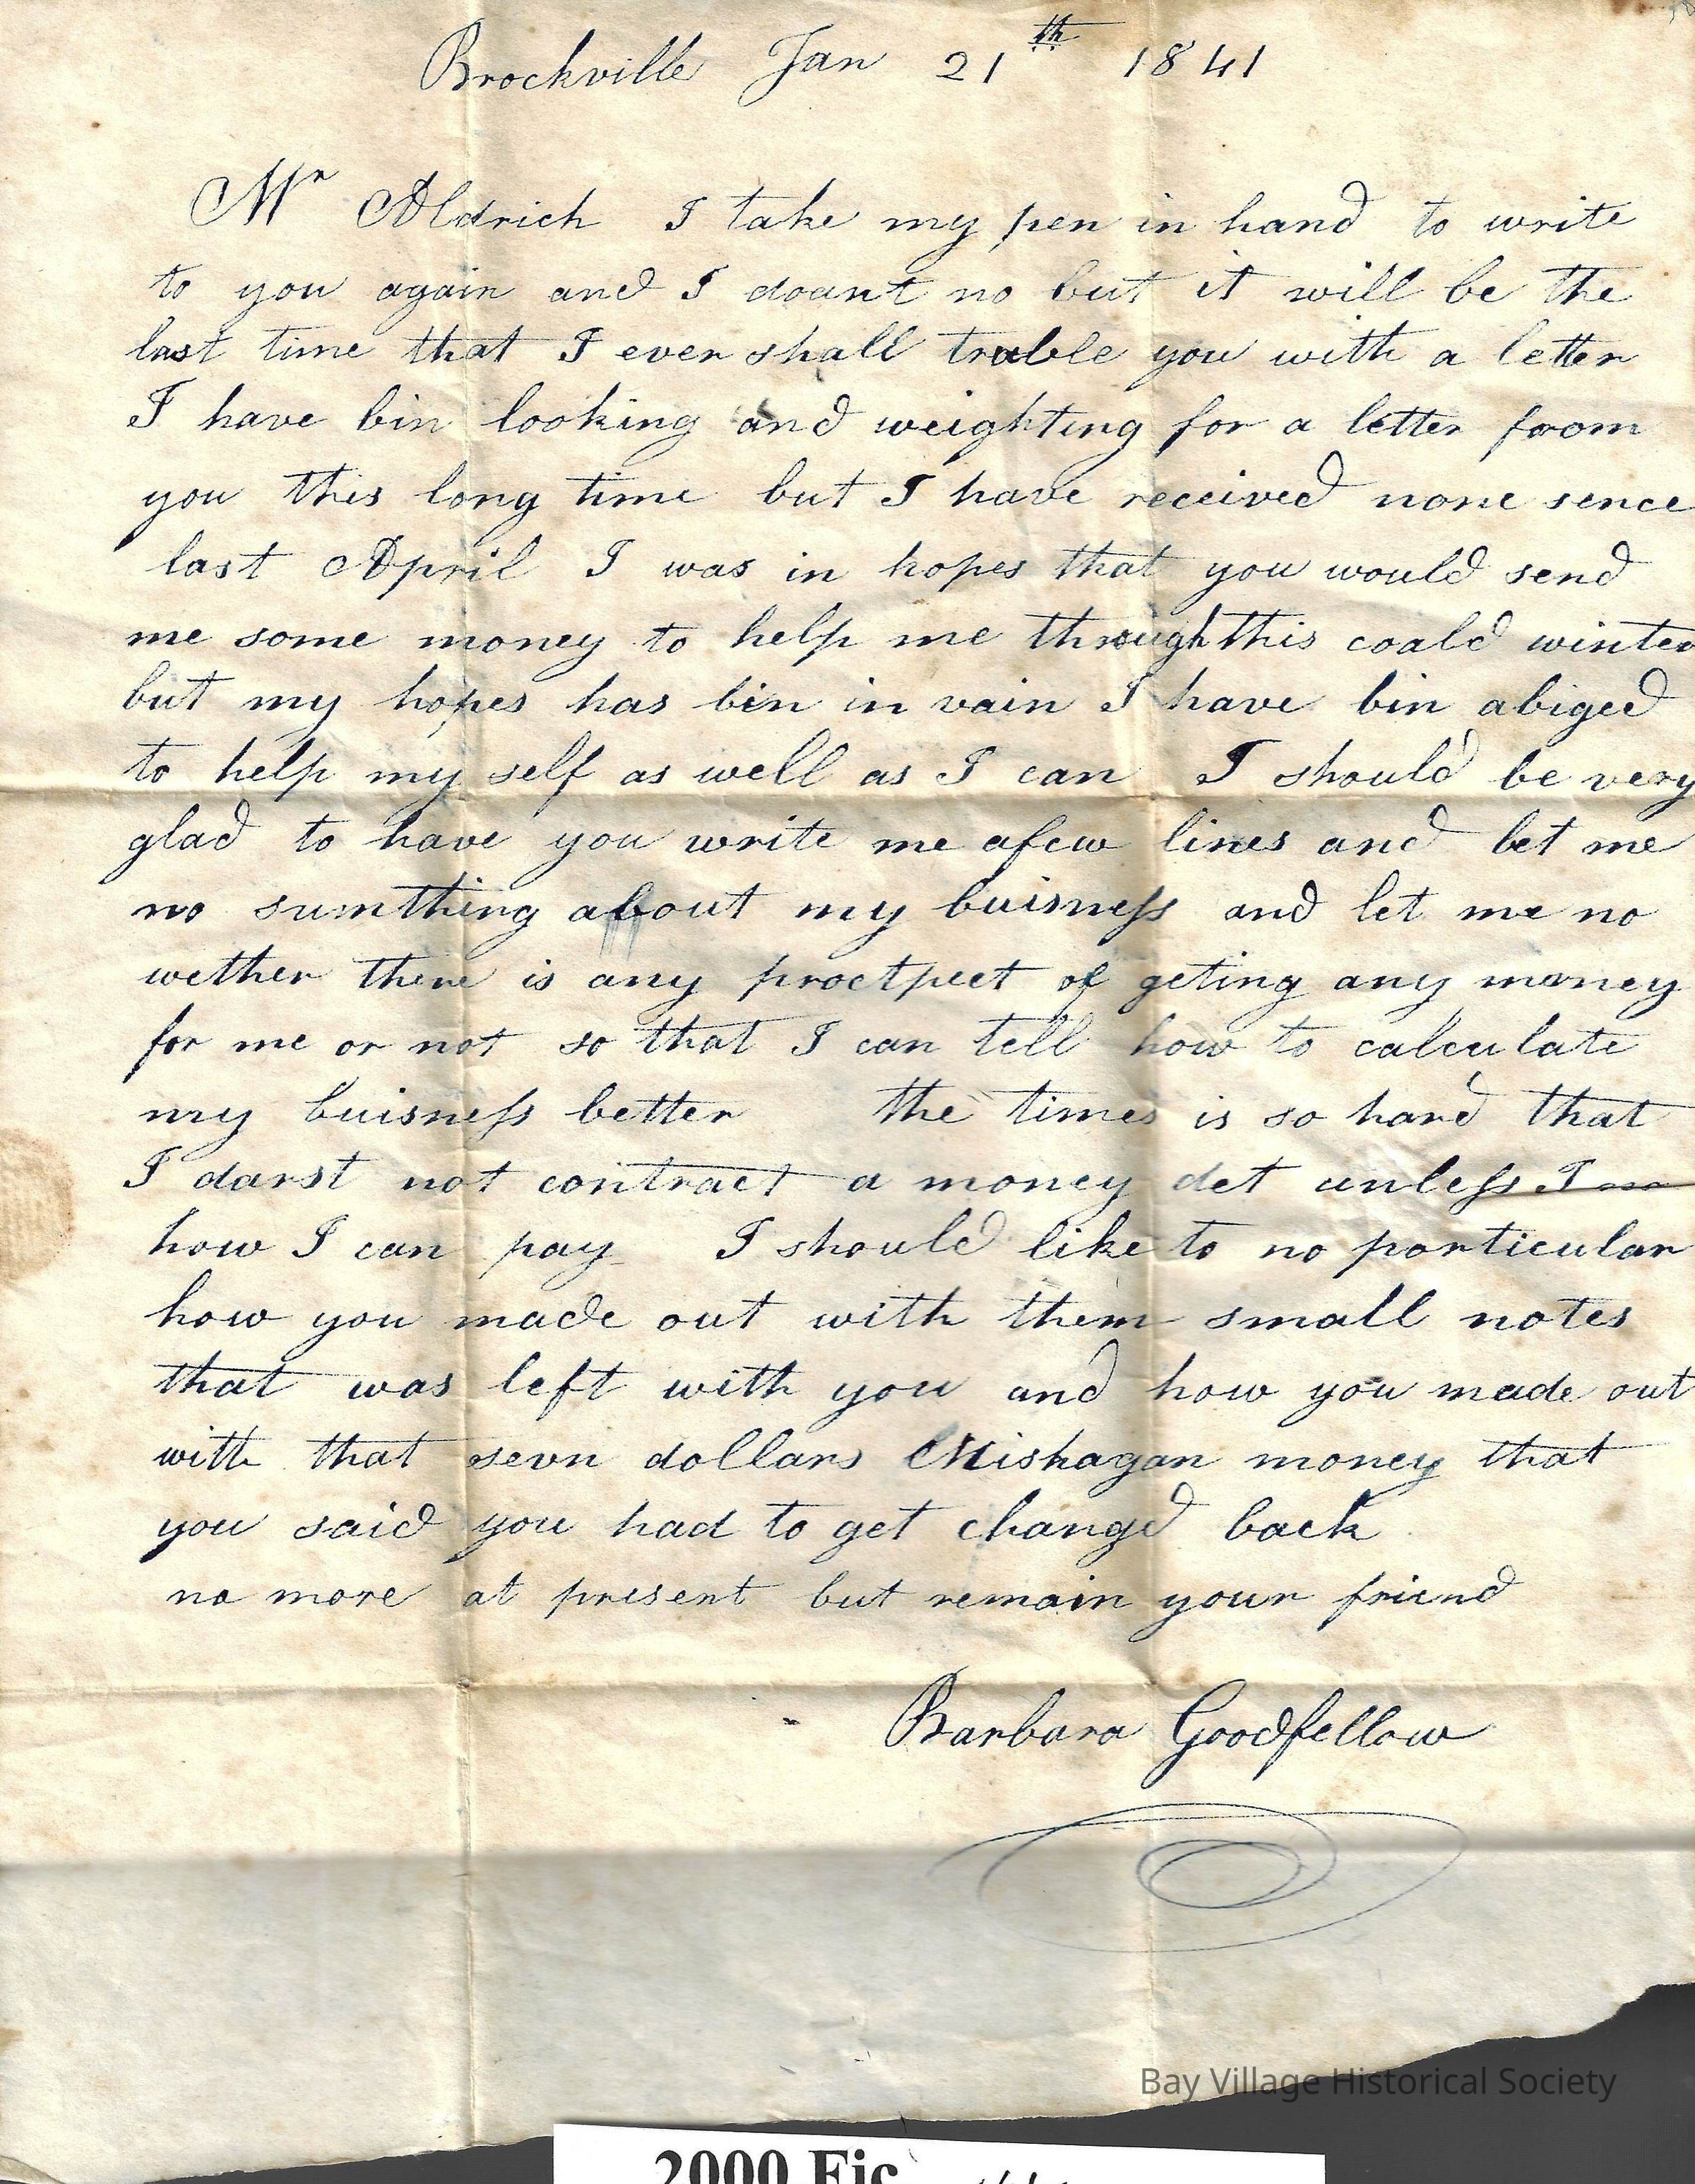 Brockville Jan 21th 1841
Mr Aldrich I take my pen in hand to write
to you again and I doant no but it will be the
last time that I ever shall truble you with a letter
I have bin looking and weighting for a letter from
you this long time but I have received none sence
last April I was in hopes that you would send
me some money to help me through this coald winter
but my hopes has bin in vain I have bin abiged
to help my self as well as I can I should be very
glad to have you write me afew lines and let me
no sumthing about my buisness and let me no
wether there is any proctpect of geting any money
for me or not so that I can tell how to calculate
my buisness better the times is so hard that
I darst not contract a money det unless I
how I can pay I should like to no particular
how you made out with them small notes
that was left with you and how you made out
with that sevn dollars Mishagan money that
you said you had to get changd back
no more at present but remain your friend
Barbara Goodfellow
Bay Village Historical Society
2000 Fic